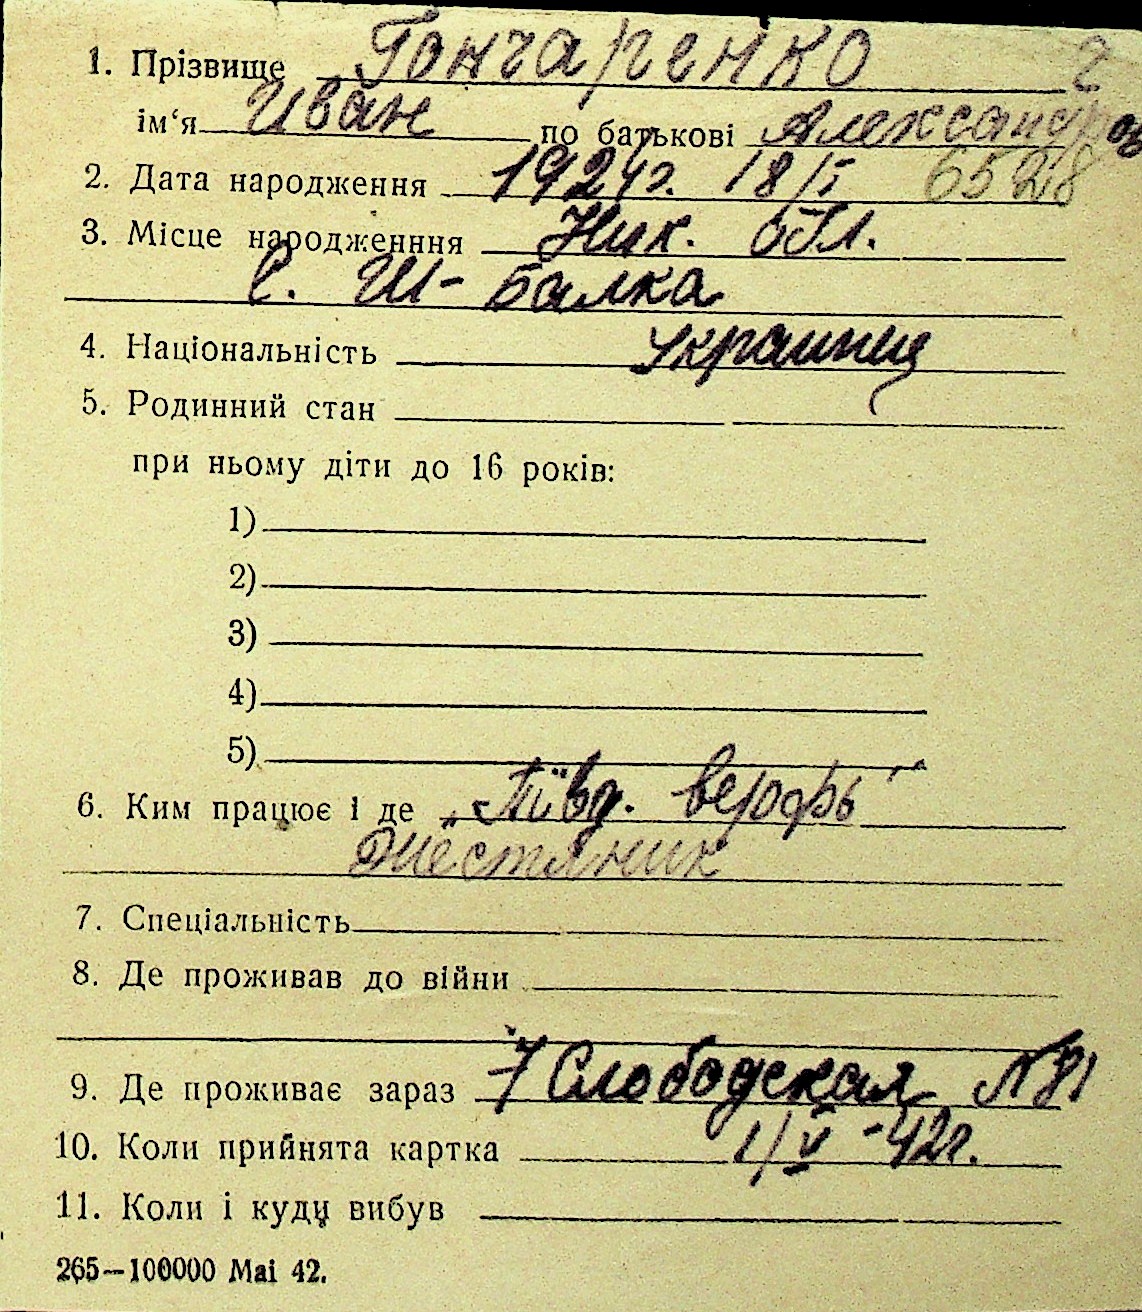 1. Прізвище Гончаренко 2
ім‘я Иван по батькові Александров
2. Дата народження 1924г. 18/I 6528
3. Місце народженння Ник. обл.
с. Ш-балка
4. Національність украинец
5. Родинний стан
при ньому діти до 16 років:
1)
2)
3)
4)
5)
6. Ким працює і де „Півд. верфь“
Жестяник
7. Спеціальність
8. Де проживав до війни
9. Де проживає зараз 7 Слободская N 81
10. Коли прийнята картка 1/V-42г.
11. Коли і куди вибув
265—100000 Mai 42.